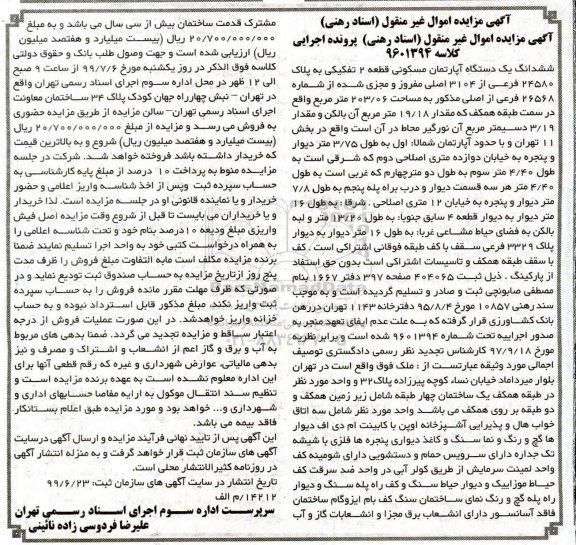 آگهی مزایده اموال غیر منقول (اسناد رهنی)
آگهی مزایده اموال غیر منقول (اسناد رهنی) پرونده اجرایی
کلاسه ۹۶۰۱۳۹۴
ششدانگ یک دستگاه آپارتمان مسکونی قطعه ۲ تفکیکی به پلاک
۲۴۵۸۰ فرعی از ۳۱۰۴ اصلی مفروز و مجزی شده از شماره
۲۶۵۶۸ فرعی از اصلی مذکور به مساحت ۲۰۳/۰۶ متر مربع واقع
در سمت طبقه همکف که مقدار ۱۹/۱۸ متر مربع آن بالکن و مقدار
۳/۱۹ دسیمتر مربع آن نورگیر محاط در آن است واقع در بخش
۱۱ تهران و با حدود آپارتمان شمالا: اول به طول ۳/۷۵ متر دیوار
و پنجره به خیابان دوازده متری اصلاحی دوم که شرقی است به
طول ۴/۴۰ متر سوم به طول دو مترچهارم که غربی است به طول
۴/۴۰ متر هر سه قسمت دیوار و درب براه پله پنجم به طول ۷/۸
متر دیوار و پنجره به خیابان ۱۲ متری اصلاحی . شرقا: به طول ۱۶
متر دیوار به دیوار قطعه ۴ سابق جنوبا: به طول ۱۳/۲۰ متر و لبه
بالکن به فضای حیاط مشاعی غربا: به طول ۱۶ متر دیوار به دیوار
پلاک ۳۳۲۹ فرعی سقف با کف طبقه فوقانی اشتراکی است . کف
با سقف طبقه همکف و تاسیسات اشتراکی است بدون حق استفاد
از پارکینگ . ذیل ثبت ۴۰۴۰۶۵ صفحه ۳۹۷ دفتر ۱۶۶۷ بنام
مصطفی صابونچی ثبت و صادر و تسلیم گردیده است و به موجب
سند رهنی ۱۰۸۵۷ مورخ ۹۵/۸/۴ دفترخانه ۱۱۴۳ تهران دررهن
بانک کشاورزی قرار گرفته که به علت عدم ایفای تعهد منجر به
صدور اجراییه تحت شماره ۹۶۰۱۳۹۴ شده است و برابر نظریه
مورخ ۹۷/۹/۱۸ کارشناس تجدید نظر رسمی دادگستری توصیف
اجمالی مورد وثیقه عبارتست از : ملک فوق واقع است در تهران
بلوار میرداماد خیابان نساء کوچه پیرزاد پلاک۳۲ و واحد مورد نظر
در طبقه همکف یک ساختمان چهار طبقه شامل زیر زمین همکف و
دو طبقه بر روی همکف می باشد واحد مورد نظر شامل سه اتاق
خواب هال و پذیرایی آشپزخانه اوپن با کابینت ام دی اف دیوار
ها گچ و رنگ و نما سنگ و کاغذ دیواری پنجره ها فلزی با شیشه
تک جداره دارای سرویس حمام و دستشویی دارای شومینه کف
واحد لمینت سرمایش از طریق کولر آبی در واحد ضد سرقت کف
حیاط موزاییک و دیوار حیاط سنگ و کف راه پله سنگ و دیوار
راه پله گچ و رنگ نمای ساختمان سنگ کف بام ایزوگام ساختمان
فاقد آسانسور دارای انشعاب برق مجزا و انشعابات گاز و آب
مشترک قدمت ساختمان بیش از سی سال می باشد و به مبلغ
۲۰/۷۰۰/۰۰۰/۰۰۰ ریال (بیست میلیارد و هفتصد میلیون
ریال) ارزیابی شده است و جهت وصول طلب بانک و حقوق دولتی
کلاسه فوق الذکر در روز یکشنبه مورخ ۹۹/۷/۶ از ساعت ۹ صبح
الی ۱۲ ظهر در محل اداره سوم اجرای اسناد رسمی تهران واقع
در تهران – نبش چهارراه جهان کودک پلاک ۳۴ ساختمان معاونت
اجرای اسناد رسمی تهران– سالن مزایده از طریق مزایده حضوری
به فروش می رسد و مزایده از مبلغ ۲۰/۷۰۰/۰۰۰/۰۰۰ ریال
(بیست میلیارد و هفتصد میلیون ریال) شروع و به بالاترین قیمت
که خریدار داشته باشد فروخته خواهد شد. شرکت در جلسه
مزایده منوط به پرداخت ۱۰ درصد از مبلغ پایه کارشناسی به
حساب سپرده ثبت وپس از اخذ شناسه واریز اعلامی و حضور
خریدار و یا نماینده قانونی او در جلسه مزایده است. لذا خریدار
و یا خریداران می بایست تا قبل از شروع وقت مزایده اصل فیش
واریزی مبلغ ودیعه ۱۰درصد بنام خود و تحت شناسه اعلامی را
به همراه درخواست کتبی خود به واحد اجرا تسلیم نمایند ضمنا
برنده مزایده مکلف است مابه التفاوت مبلغ فروش را ظرف مدت
پنج روز ازتاریخ مزایده به حساب صندوق ثبت تودیع نماید و در
صورتی که ظرف مهلت مقرر مانده فروش را به حساب سپرده
ثبت واریز نکند، مبلغ مذکور قابل استرداد نبوده و به حساب
خزانه واریز خواهدشد. در این صورت عملیات فروش از درجه
اعتبار ساقط و مزایده تجدید می گردد. ضمنا بدهی های مربوط
به آب و برق و گاز اعم از انشعاب و اشتراک و مصرف و نیز
بدهی مالیاتی، عوارض شهرداری و غیره که رقم قطعی آنها برای
این اداره معلوم نشده است به عهده برنده مزایده است و
تنظیم سند انتقال موکول به ارایه مفاصا حسابهای اداری و
شهرداری و... خواهد بود و مورد مزایده طبق اعلام بستانکار
فاقد بیمه می باشد.
این آگهی پس از تایید نهائی فرآیند مزایده و ارسال آگهی درسایت
آگهی های سازمان ثبت قرار خواهد گرفت و به منزله انتشار آگهی
در روزنامه کثیرالانتشار محلی است.
تاریخ انتشار در سایت آگهی های سازمان ثبت: ۹۹/۶/۲۳
۱۴۲۱۲/م الف
سرپرست اداره سوم اجرای اسناد رسمی تهران
علیرضا فردوسی زاده نائینی